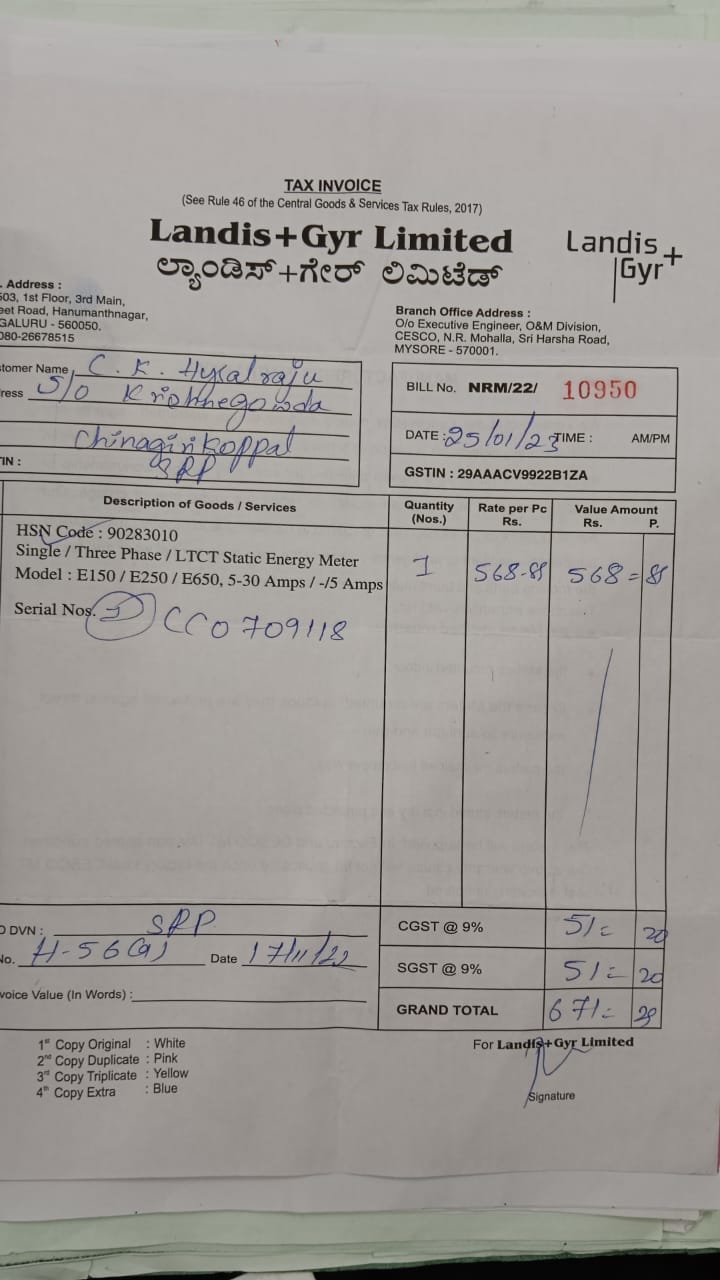 TAX INVOICE
(See Rule 46 of the Central Goods & Services Tax Rules, 2017)
Landis+Gyr Limited
ಲ್ಯಾಂಡಿಸ್+ಗೇರ್ ಲಿಮಿಟೆಡ್
Landis+
Gyr
. Address :
503, 1st Floor, 3rd Main,
eet Road, Hanumanthnagar,
GALURU - 560050.
080-26678515
Branch Office Address :
O/o Executive Engineer, O&M Division,
CESCO, N.R. Mohalla, Sri Harsha Road,
MYSORE - 570001.
tomer Name C. K.
ress S/o Krishnegowda
Chinagirikoppal
SRP
IN :
BILL No. NRM/22/ 10950
DATE : 25/01/23 TIME : AM/PM
GSTIN : 29AAACV9922B1ZA
Description of Goods / Services
Quantity (Nos.)
Rate per Pc Rs.
Value Amount Rs. P.
HSN Code : 90283010
Single / Three Phase / LTCT Static Energy Meter
Model : E150 / E250 / E650, 5-30 Amps / -/5 Amps
1 568-85 568=85
Serial Nos. 1 CC0709118
O DVN : SRP
No. H-56(a) Date 17/11/22
voice Value (In Words) :
CGST @ 9% 51= 20
SGST @ 9% 51= 20
GRAND TOTAL 671= 
1st Copy Original : White
2nd Copy Duplicate : Pink
3rd Copy Triplicate : Yellow
4th Copy Extra : Blue
For Landis+Gyr Limited
Signature